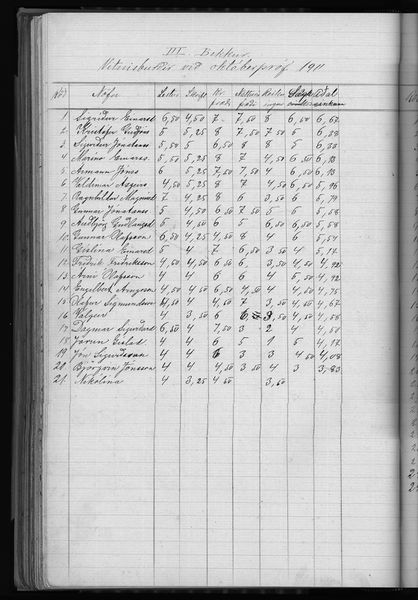 III. Bekkur.
Vitnisburðir við októberpróf 1911
No Nöfn Lestur Skrift Kr.fræði Náttúrufræði Reikningur Aðaleinkunn
1 Sigríður Einarsd 6,50 4,50 7 7,50 8 6,50 6,67
2 Kristófer 5 5,25 8 7,50 7,50 5 6,38
3 Sigurður Jónatanss 5,50 5 6,50 8 8 5 6,33
4 Marino Einarss. 5,50 5,25 8 7 4,50 6,50 6,13
5 Ármann Jónss 6 5 7,50 7,50 4 6,50 6,13
6 Valdemar 4,50 5,25 8 7 4,50 6,50 5,96
7 Ragnheiður Magnúsd 7 4,25 8 6 3,50 6 5,79
8 Gunnar Jónatanss 5 4,50 6,50 7,50 5 5
9 5 4,50 6 6,50 6,50 5,58
10 Gunnar Ólafsson 6,50 4,25 4,50 8 4 6 5,54
11 Gíslína Einarsd 5 4 7 6,50 3,50 4 5,17
12 Friðrik Friðriksson 4,50 4,50 6,50 6 3,50 4,50 4,92
13 Árni Ólafsson 4 4 6 6 4 5,50 4,92
14 Engilbert Árnason 4,50 4 6,50 4,50 4 4,50 4,75
15 Ólafur Sigmundsson 4,50 4 4,50 7 3,50 4,50 4,67
16 Valgeir 4 3,50 6 4,50 4,58
17 Dagmar Sigurðard 6,50 4 7,50 3 2 4 4,50
18 Jórunn Gíslad 4 4 6 5 1 5 4,17
19 Jón Sigurðsson 4 4 6 3 3 4,50 4,08
20 Björgvin Jónsson 4 4 4,50 3,50 4 3 3,83
21 Nikolina 4 3,25 4,50 3,50